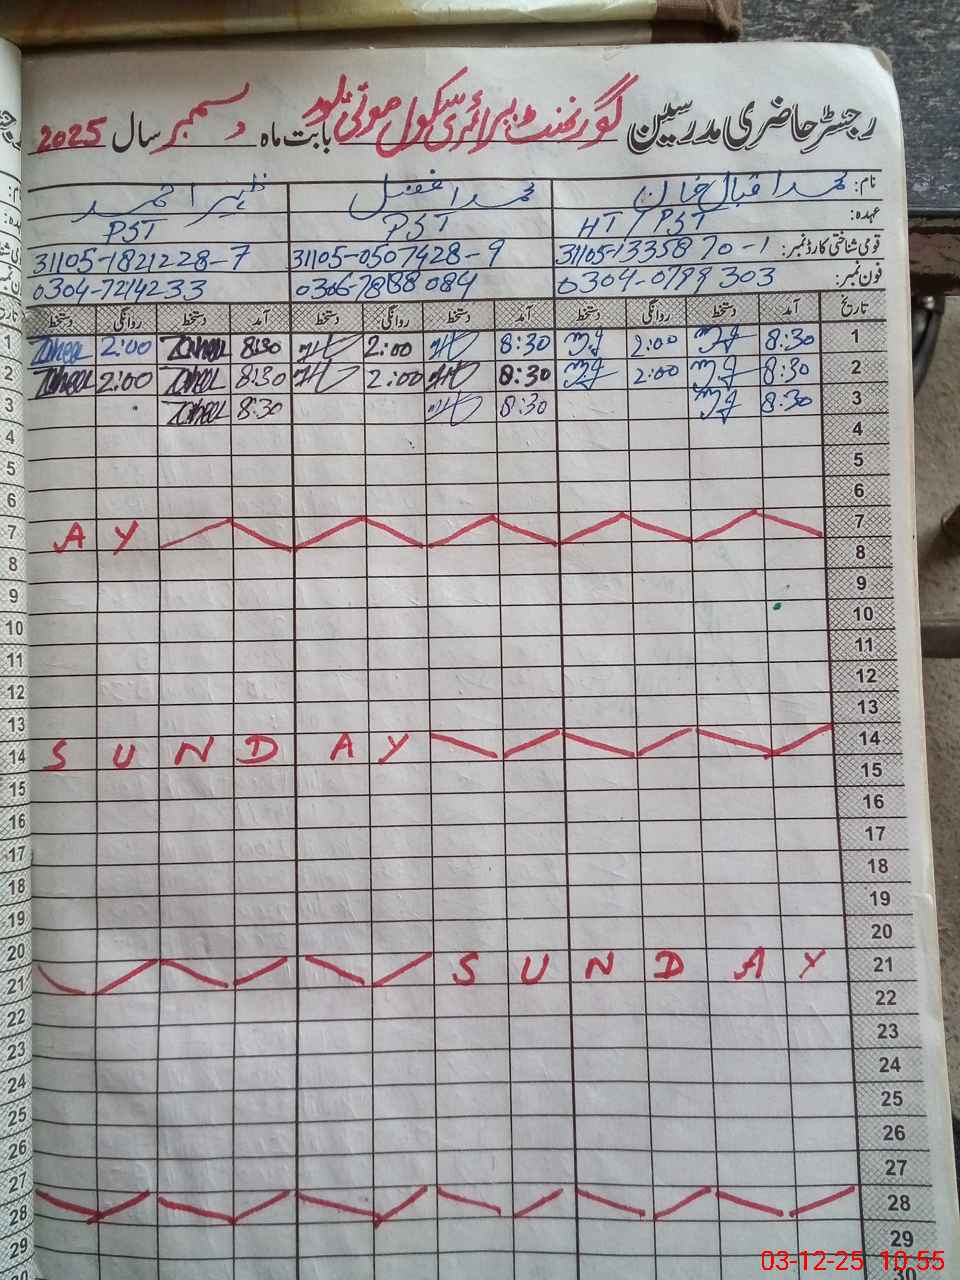 رجسٹر حاضری مدرسین گورنمنٹ پرائمری سکول موتی لود بابت ماہ دسمبر سال 2025
نام: محمد اقبال خان محمد افضل ظہیر احمد
عہدہ: HT / PST PST PST
قومی شناختی کارڈ نمبر: 31105-1335870-1 31105-0507428-9 31105-1821228-7
فون نمبر: 0304-0799303 0306-7888084 0304-7214233
تاریخ آمد دستخط روانگی دستخط آمد روانگی دستخط آمد دستخط روانگی دستخط
1 8:30 2:00 8:30 2:00 8:30 2:00
2 8:30 2:00 8:30 2:00 8:30 2:00
3 8:30 8:30 8:30
4
5
6
7 A Y
8
9
10
11
12
13
14 S U N D A Y
15
16
17
18
19
20
21 S U N D A Y
22
23
24
25
26
27
28
29
30
03-12-25 10:55